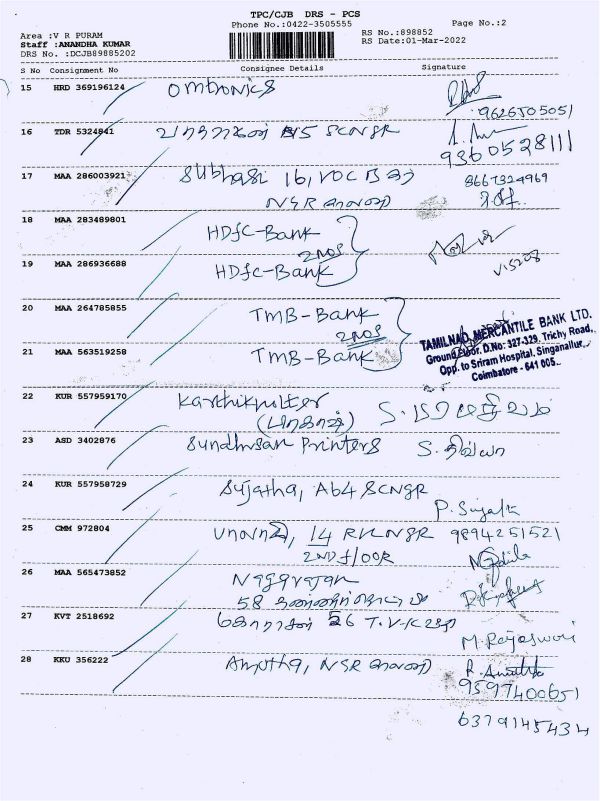 TPC/CJB DRS - PCS
Phone No.:0422-3505555
Page No.:2
Area :V R PURAM
RS No.:898852
Staff :ANANDHA KUMAR
RS Date:01-Mar-2022
DRS No. :DCJB89885202
S No Consignment No Consignee Details Signature
15 HRD 369196124 Omtronics
9626505051
16 TDR 5324841 SCNGR
9360528111
17 MAA 286003921 Subhasi 16, VOC
8667324969
NSR
18 MAA 283489801
HDFC-Bank
2nos
19 MAA 286936688 HDFC-Bank
V15208
20 MAA 264785855 TMB-Bank
2nos
21 MAA 563519258 TMB-Bank
TAMILNAD MERCANTILE BANK LTD.
Ground Floor. D.No: 327-329, Trichy Road,
Opp. to Sriram Hospital, Singanallur,
Coimbatore - 641 005.
22 KUR 557959170
23 ASD 3402876 Sundhrsan Printers S. திவ்யா
24 KUR 557958729 Sujatha, A64 SCNGR
P. Sujatha
25 CMM 972804 14 RVLNGR 9894251521
2ND floor
26 MAA 565473852 Nagarajan
58
27 KVT 2518692 26 T.V.K
M. Rajeswari
28 KKU 356222 Amutha, NSR
R. Amutha
9597400651
6379145434